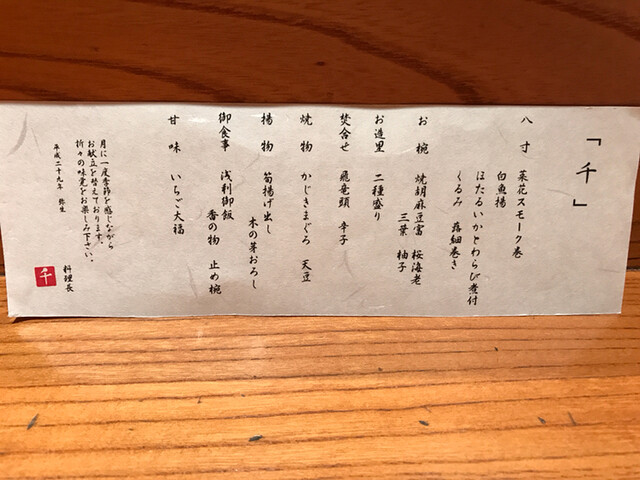 「千」
八寸 菜花スモーク巻
白魚揚
ほたるいかとわらび煮付
くるみ 蕗細巻き
お椀 焼胡麻豆富 桜海老
三葉 柚子
お造里 二種盛り
焚合せ 飛竜頭 辛子
焼物 かじきまぐろ 天豆
揚物 筍揚げ出し
木の芽おろし
御食事 浅利御飯
香の物 止め椀
甘味 いちご大福
月に一度季節を感じながら
お献立を替えております。
折々の味覚をお楽しみ下さい。
平成二十九年 弥生
料理長
千